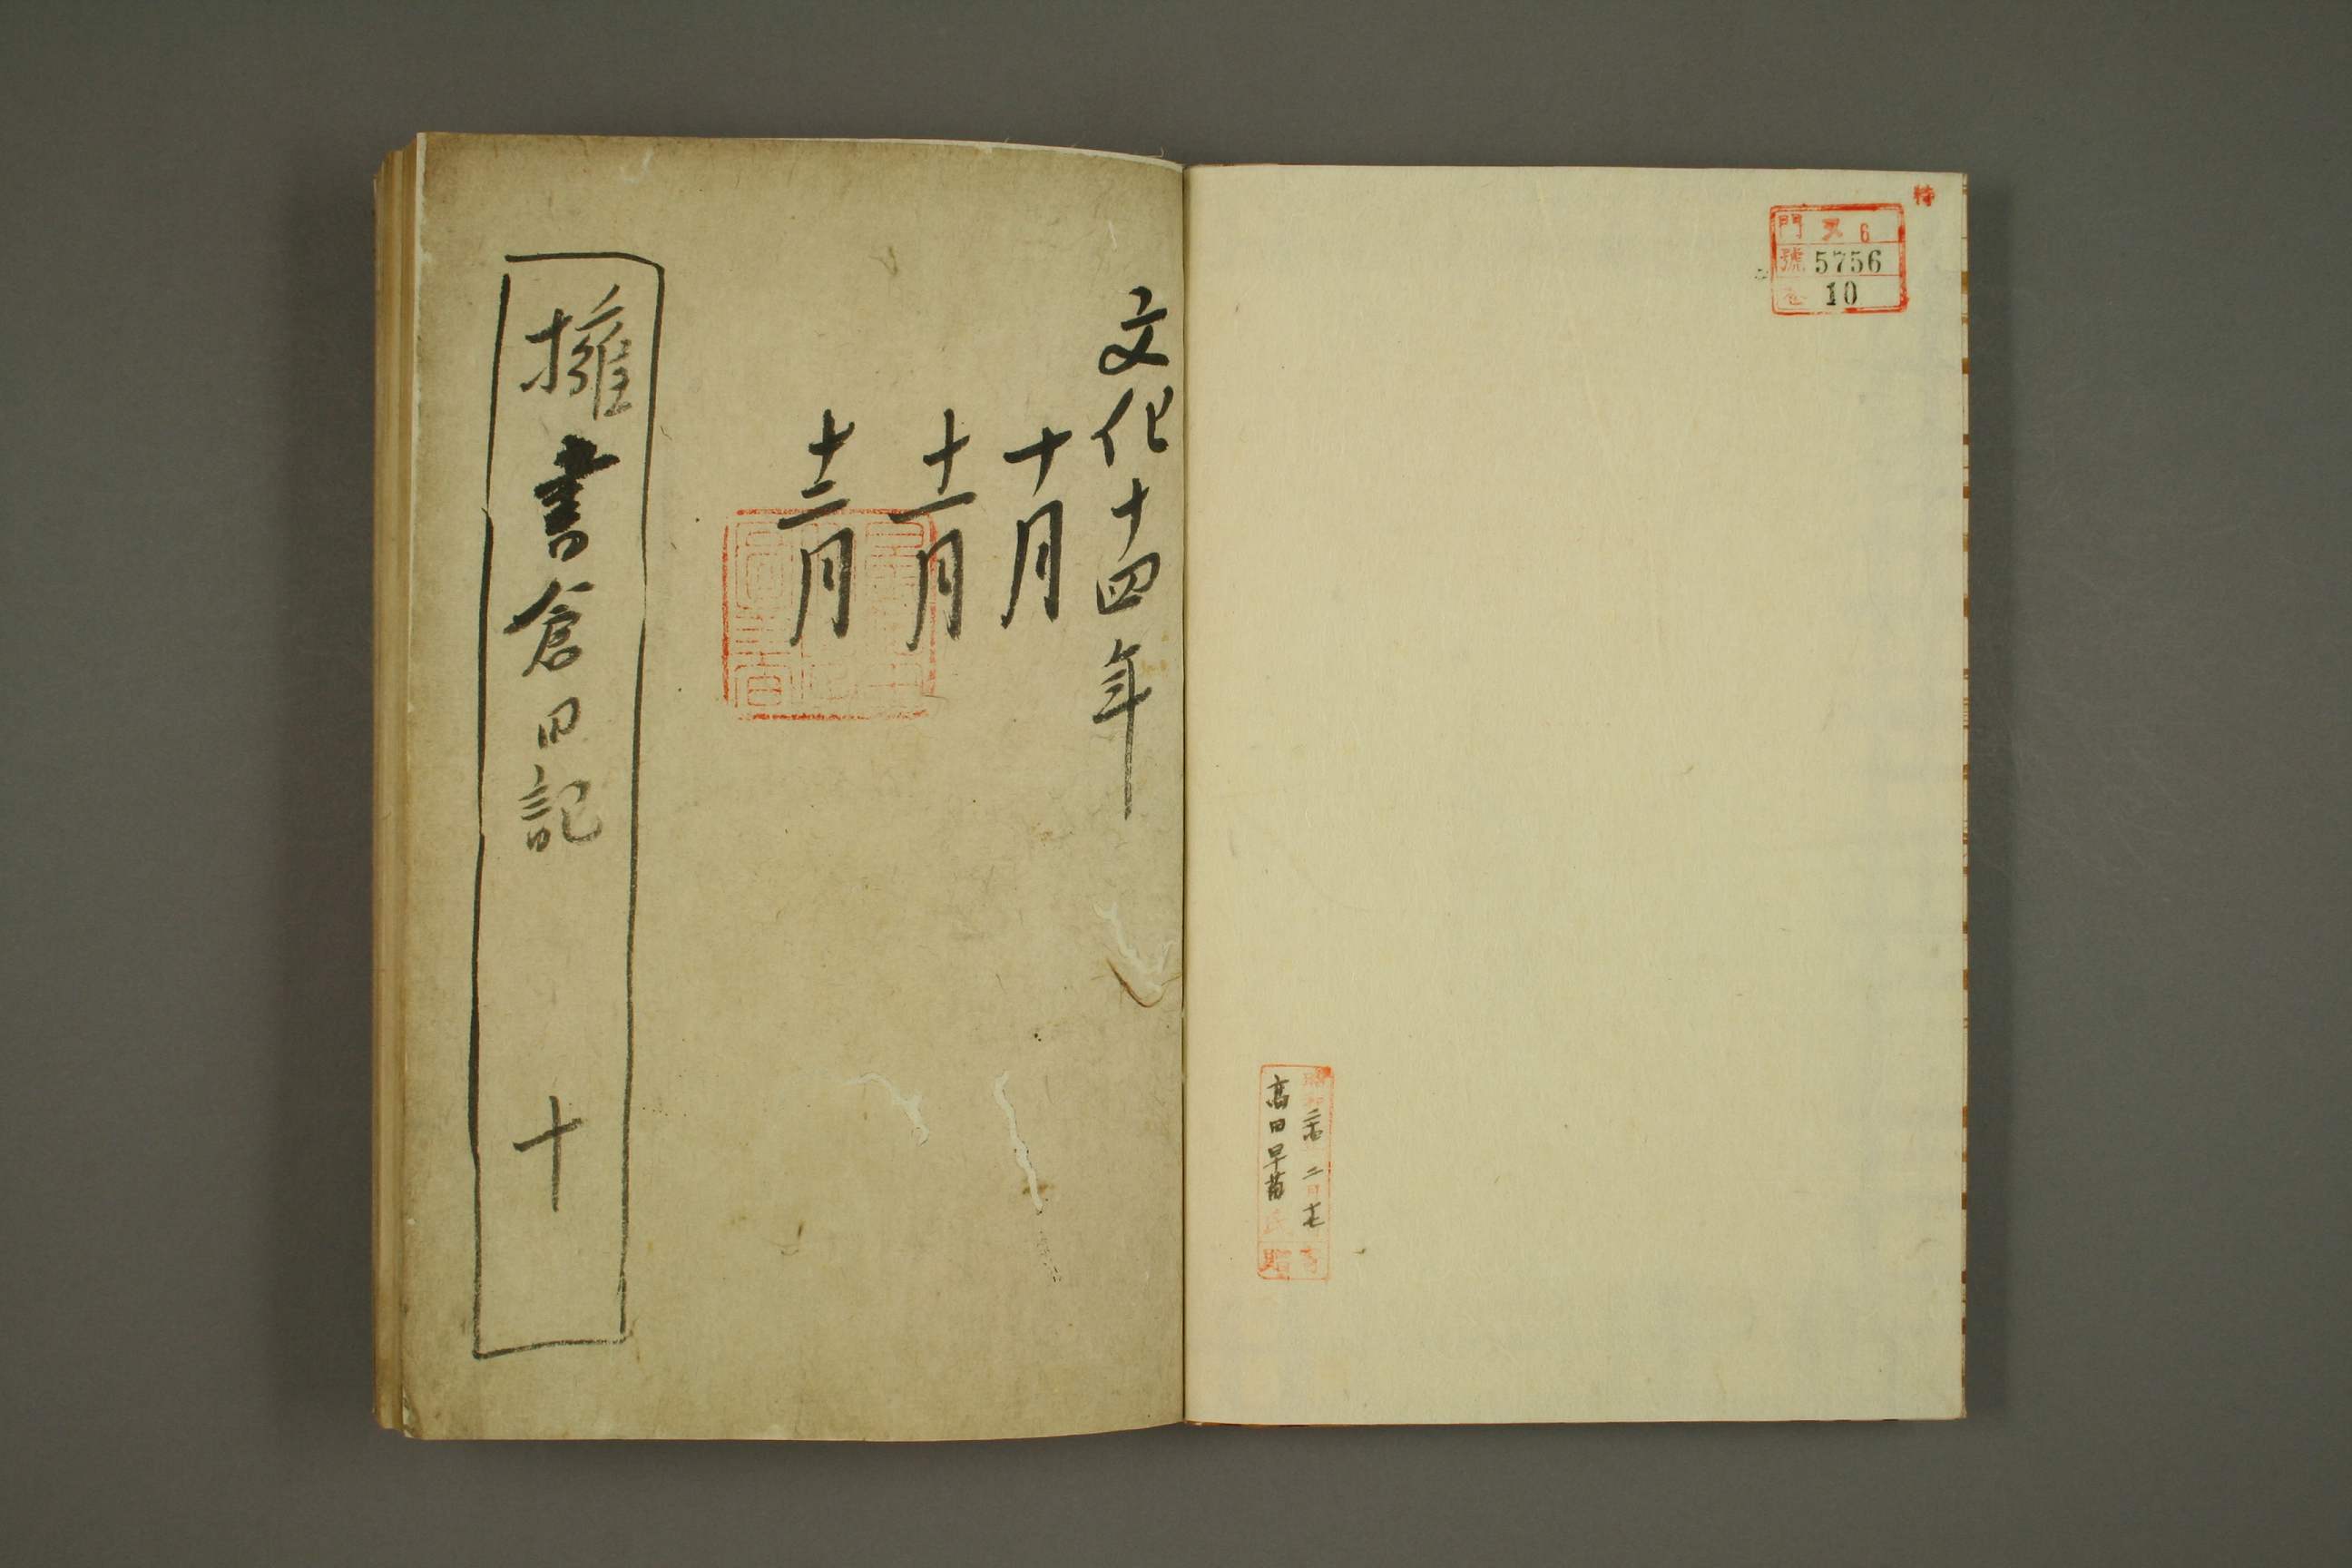 特
門 ヌ 6
號 5756
卷 10
高田早苗氏
寄贈
文化十四年
十月
十一月
十二月
擁書倉日記 十